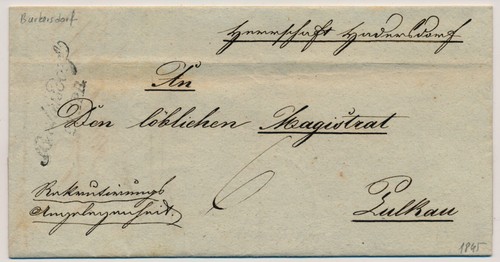 Herrschaft Hadersdorf
An
Den löblichen Magistrat
Rekrutierungs
Angelegenheit.
6
Pulkau
1845